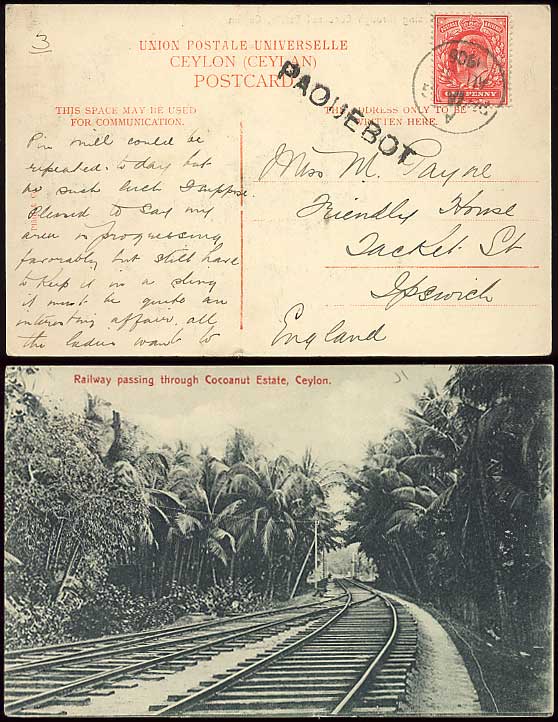 3
UNION POSTALE UNIVERSELLE
CEYLON (CEYLAN)
POSTCARD
PAQUEBOT
THIS SPACE MAY BE USED
FOR COMMUNICATION.
THE ADDRESS ONLY TO BE
WRITTEN HERE.
ONE PENNY
will could be
repeated to day but
no such luck I suppose.
Plesed to say my
arm is progressing
favorably but still have
to keep it in a sling
it must be quite an
interesting affair. all
the ladies want to
Miss M. Payne
Friendly House
Tacket St
Ipswich
England
Railway passing through Cocoanut Estate, Ceylon.